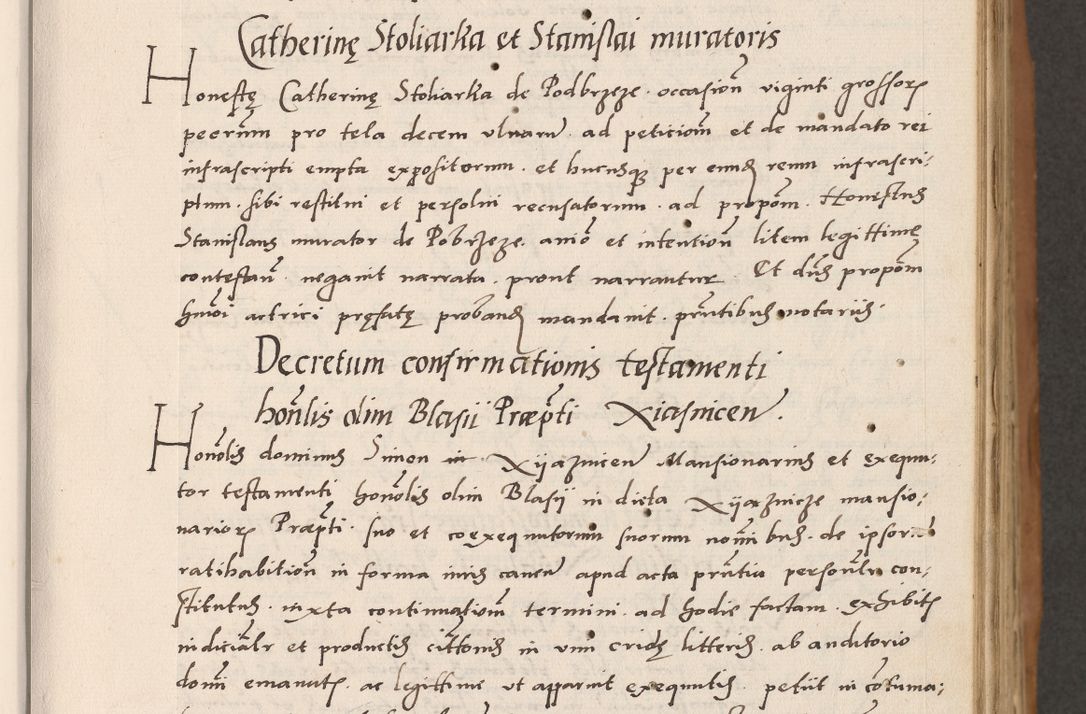 Catherinę Stoliarka et Stanislai muratoris
Honestę Catherinę Stoliarka de Podbrzeze. occasion̄ viginti grossorꝝ
peorum̄ pro tela decem vlnarū. ad peticiom̄ et de mandato rei
infrascripti empta expositorum. et hucusqꝫ per eundꝫ reum infrascri:
ptum. sibi restitui et persolui recusatorum. ad propōm. Honestus
Stanislaus murator de Pobrzeze. aniō et intention̄ litem legittime
contestan̄. negauit narrata. prout narrantur. Et dn̄s propōm
hmōi actrici pręfatę probandꝫ mandauit. pn̄tibus notariis.
Decretum confirmationis testamenti
hon̄lis olim Blasii Præpti Xiasnicen̄.
Honōlis dominus Simon Xyaznicen̄ Mansionarius et exequu:
tor testamenti honōlis olim Blasii in dicta Xyaznicze mansio:
nariorꝝ Præpti. suo et coexequutorum suorum nom̄ibus. de ipsor
ratihabition̄ in forma iuris cauen̄ apud acta pn̄tia personl̄r con:
stitutus. iuxta continuatiom̄ termini. ad hodie factam. exhibitꝭ
iudicial̄r et productis citt̄onis in vim cridꝫ litteris. ab auditorio
dom̄i emanatꝭ. ac legittime vt apparuit exequutis. petiit in cōtuma: